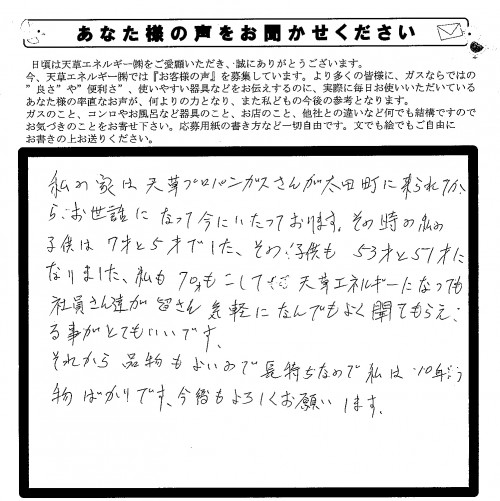 あなた様の声をお聞かせください
日頃は天草エネルギー㈱をご愛顧いただき、誠にありがとうございます。
今、天草エネルギー㈱では『お客様の声』を募集しています。より多くの皆様に、ガスならではの
”良さ”や”便利さ”、使いやすい器具などをお伝えするのに、実際に毎日お使いいただいている
あなた様の率直なお声が、何よりの力となり、また私どもの今後の参考となります。
ガスのこと、コンロやお風呂など器具のこと、お店のこと、他社との違いなど何でも結構ですので
お気づきのことをお寄せ下さい。応募用紙の書き方など一切自由です。文でも絵でもご自由に
お書きの上お送りください。
私の家は天草プロパンガスさんが太田町に来られてか
ら、お世話になって今にいたっております。その時の私の
子供は7才と5才でした、その子供も53才と51才に
なりました、私も70才もこして 天草エネルギーになっても
社員さん達が皆さん気軽になんでもよく聞てもらえ
る事がとてもいいです。
それから品物もよいので長持ちなので私は10年
物ばかりです、今后もよろしくお願います。